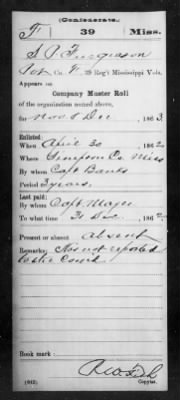 (Confederate.)
F 39 Miss.
S. P. Furgason
Pvt, Co. F, 39 Reg't Mississippi Vols.
Appears on
Company Muster Roll
of the organization named above,
for Nov & Dec, 186 3.
Enlisted:
When April 30, 186 2.
Where Simpson Co Miss
By whom Capt Banks
Period 3 years.
Last paid:
By whom Capt Mayer
To what time 31 Dec, 186 2.
Present or absent Absent
Remarks: Has not reported
Book mark:
(642) Copyist.